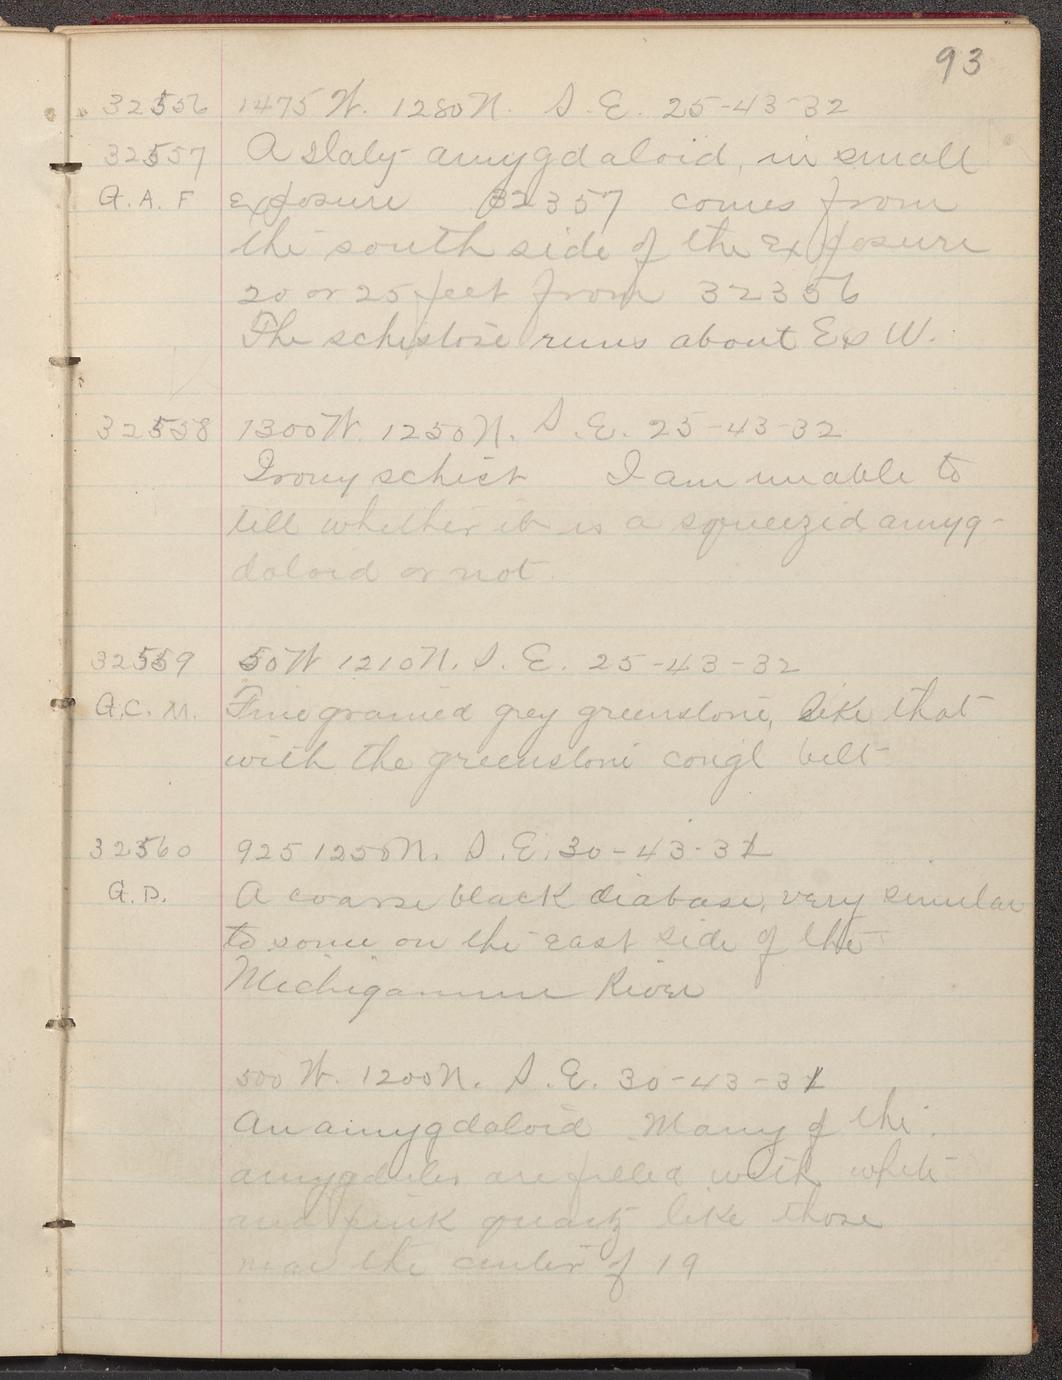 93
32556 1475 W. 1280 N. S. E. 25-43-32
32557 A slaty amygdaloid, in small
G. A. F exposure 32357 comes from
the south side of the exposure
20 or 25 feet from 32356
The schistose runs about E & W.
32558 1300 W. 1250 N. S. E. 25-43-32
Irony schist I am unable to
tell whether it is a squeezed amyg-
daloid or not.
32559 50 W 1210 N. S. E. 25-43-32
G.C. M. Fine grained grey greenstone, like that
with the greenstone congl belt
32560 925 1250 N. S. E. 30-43-31
G.D. A coarse black diabase, very similar
to some on the east side of the
Michigamme River
500 W. 1200 N. S. E. 30-43-31
An amygdaloid Many of the
amygdules are filled with white
and pink quartz like those
near the center of 19